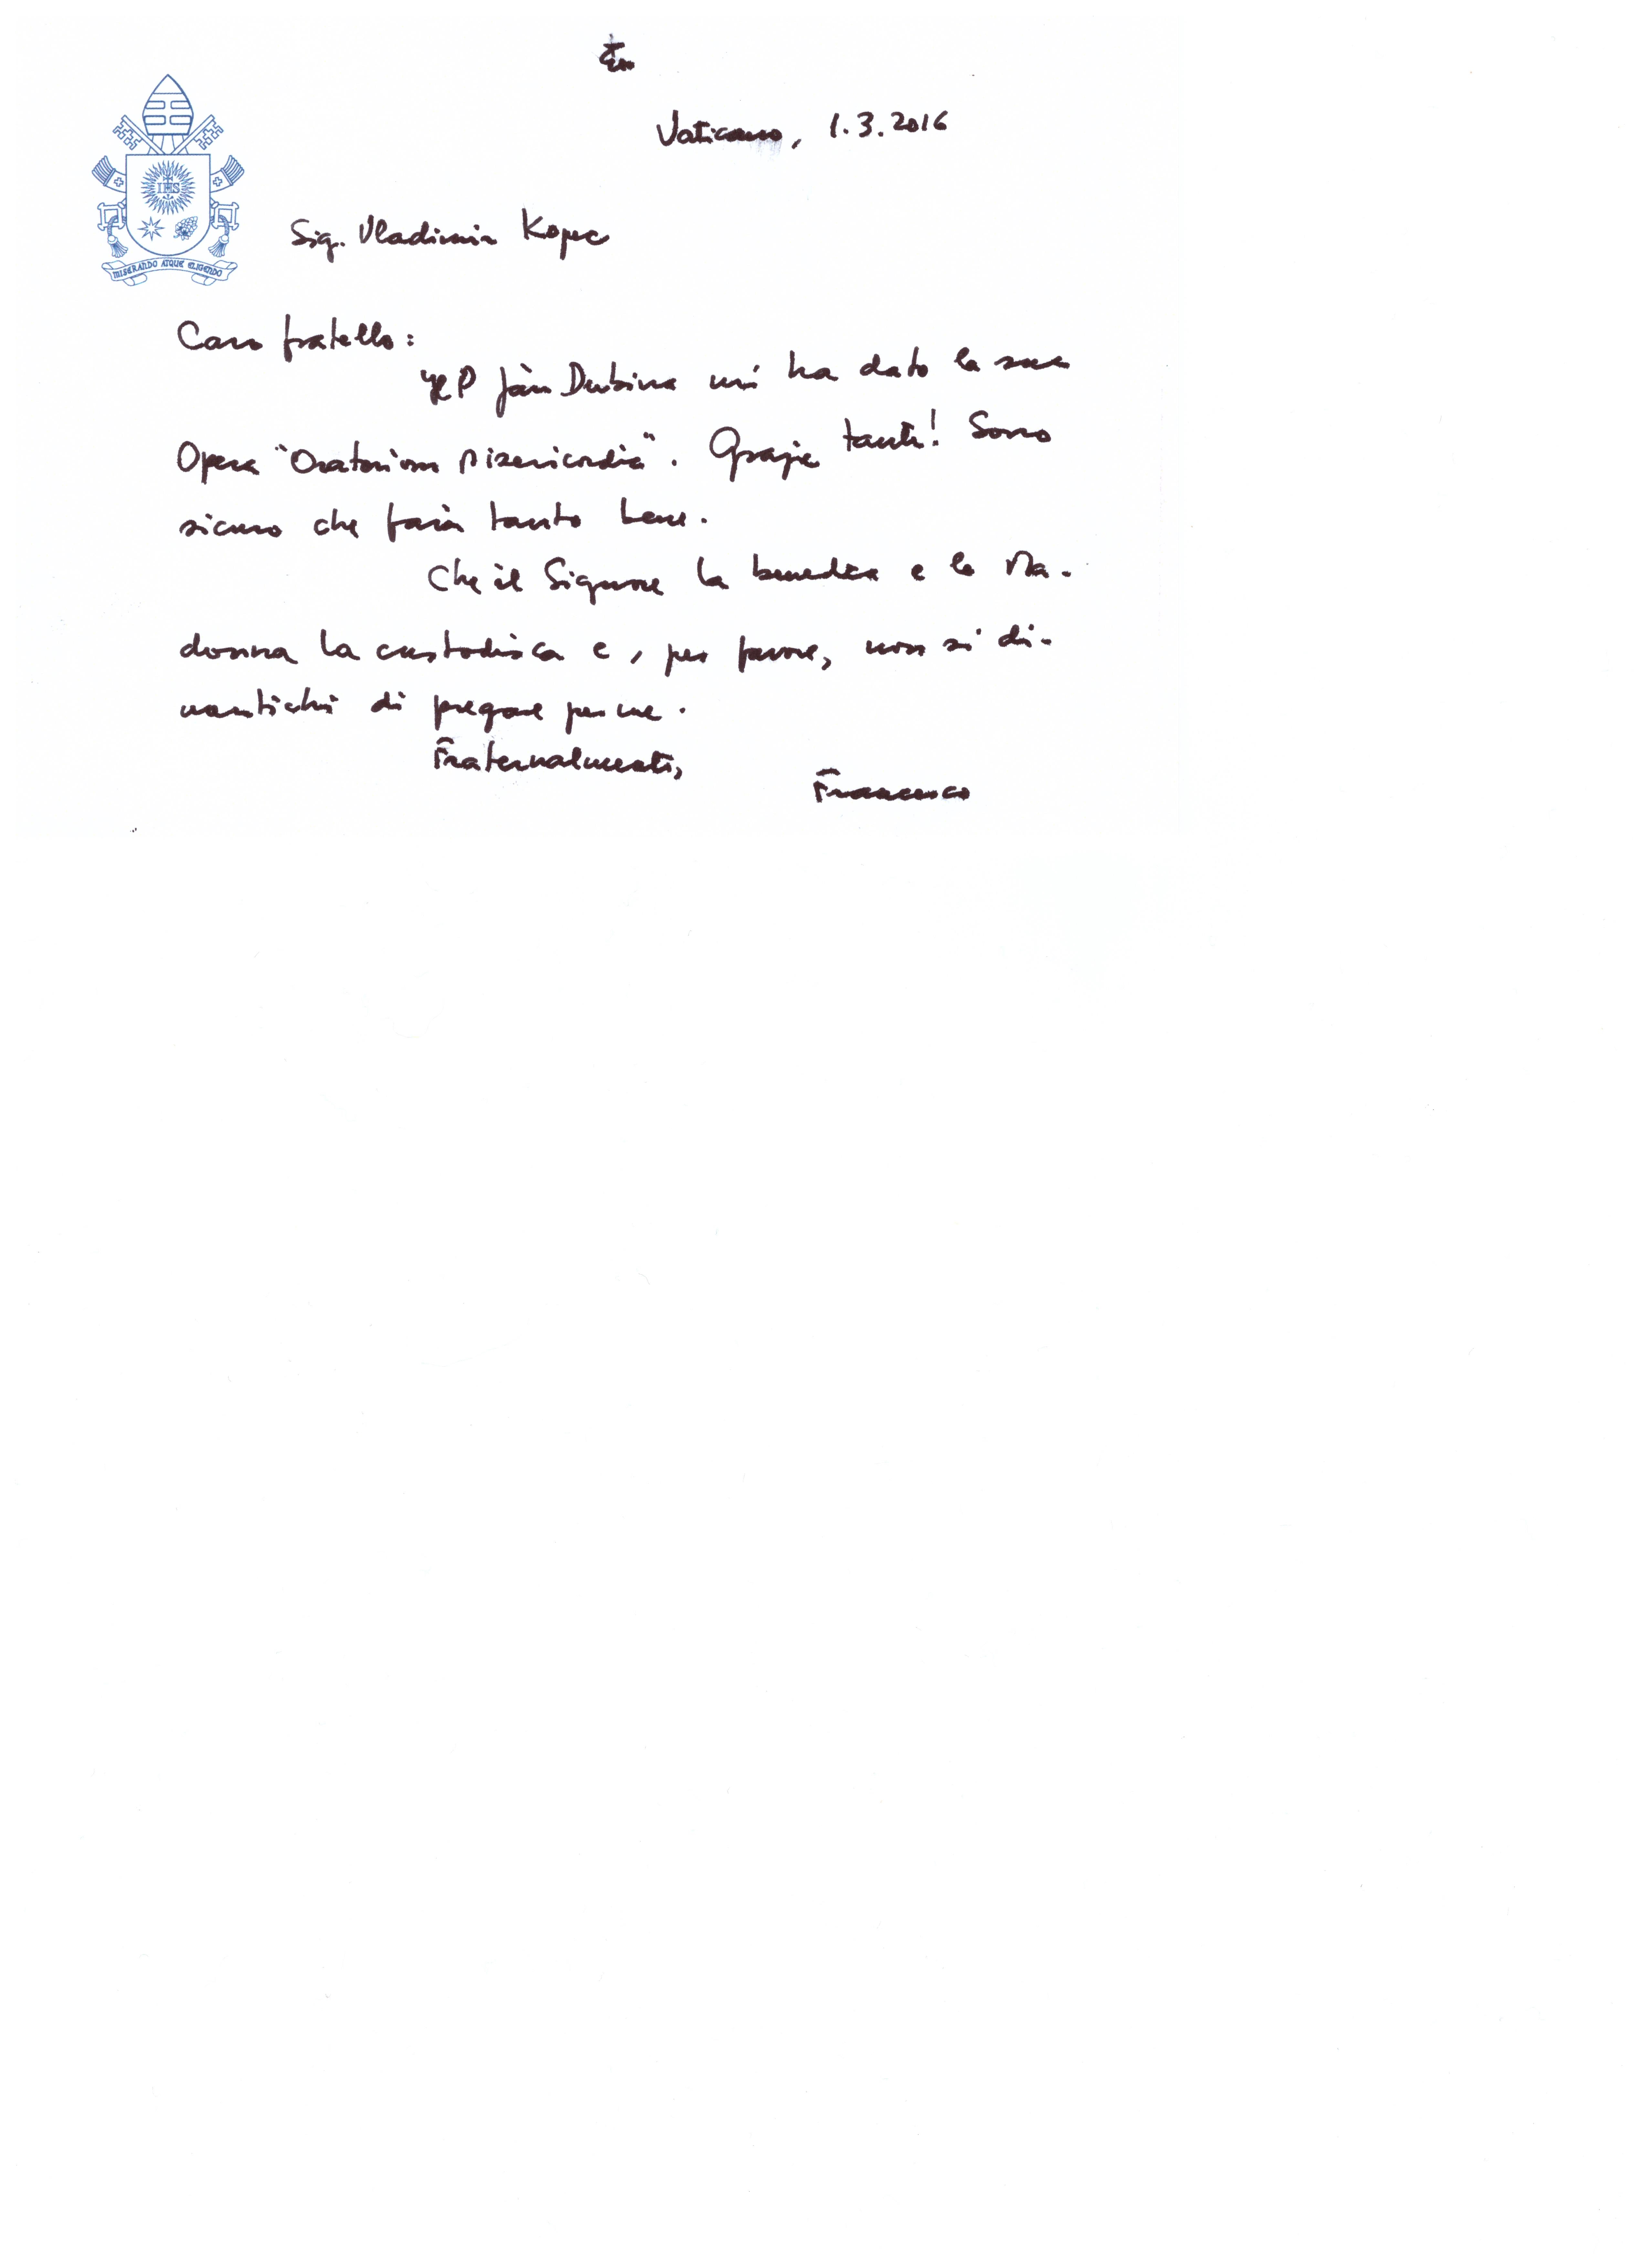 Vaticano, 1.3.2016
IHS
MISERANDO ATQUE ELIGENDO
Sig. Vladimir Kopec
Caro fratello:
Il P Ján Dubina mi ha dato la sua
Opera "Oratorium Misericordia". Grazie tante! Sono
sicuro che farà tanto bene.
Che il Signore la benedica e la Ma-
donna la custodisca e, per favore, non si di-
mentichi di pregare per me.
Fraternalmente,
Francesco